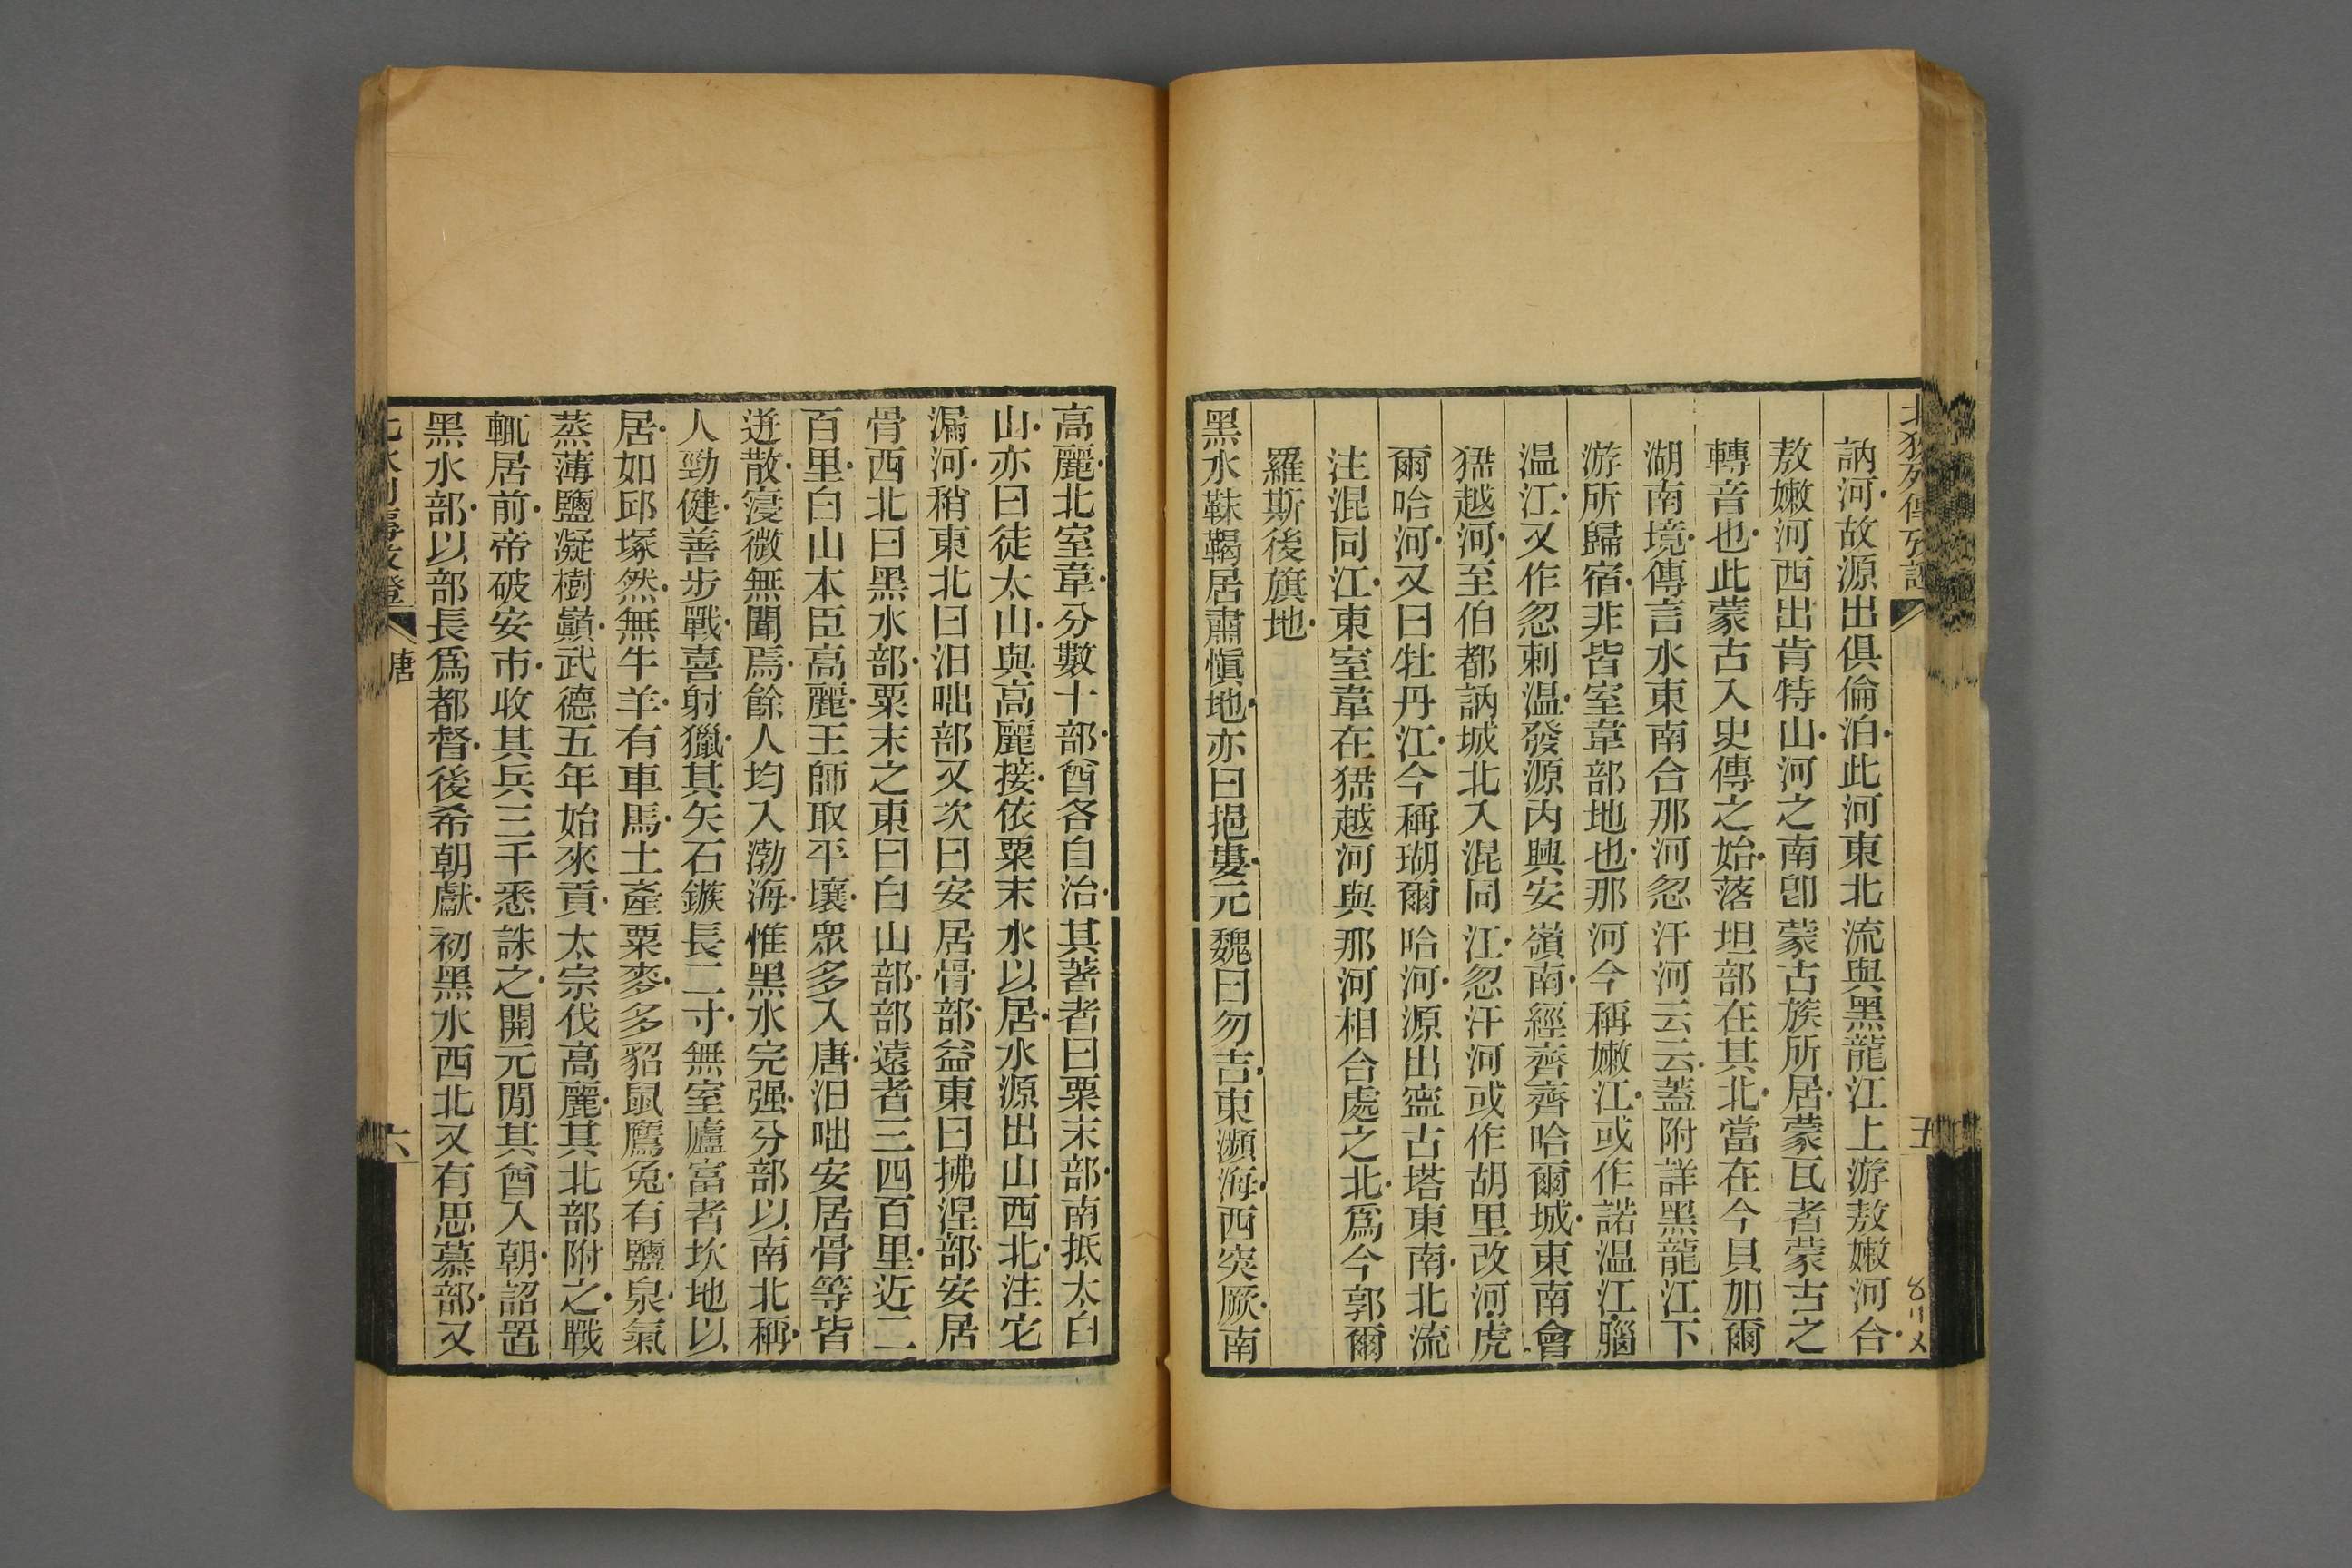 北狄列傳攷證
五
訥河故源出俱倫泊此河東北流與黑龍江上游敖嫩河合
敖嫩河西出肯特山河之南卽蒙古族所居蒙瓦者蒙古之
轉音也此蒙古入史傳之始落坦部在其北當在今貝加爾
湖南境傳言水東南合那河忽汗河云云蓋附詳黑龍江下
游所歸宿非皆室韋部地也那河今稱嫩江或作諾温江腦
温江又作忽剌温發源內興安嶺南經齊齊哈爾城東南會
猛越河至伯都訥城北入混同江忽汗河或作胡里改河虎
爾哈河又曰牡丹江今稱瑚爾哈河源出寍古塔東南北流
注混同江東室韋在猛越河與那河相合處之北爲今郭爾
羅斯後旗地
黑水靺鞨居肅愼地亦曰挹婁元魏曰勿吉東瀕海西突厥南
高麗北室韋分數十部酋各自治其著者曰粟末部南抵太白
山亦曰徒太山與高麗接依粟末水以居水源出山西北注它
漏河稍東北曰汨咄部又次曰安居骨部益東曰拂涅部安居
骨西北曰黑水部粟末之東曰白山部部遠者三四百里近二
百里白山本臣高麗王師取平壤眾多入唐汨咄安居骨等皆
迸散寖微無聞焉餘人均入渤海惟黑水完强分部以南北稱
人勁健善步戰喜射獵其矢石鏃長二寸無室廬富者坎地以
居如邱塚然無牛羊有車馬土產粟麥多貂鼠鷹兔有鹽泉氣
蒸薄鹽凝樹巔武德五年始來貢太宗伐高麗其北部附之戰
輒居前帝破安市收其兵三千悉誅之開元閒其酋入朝詔置
黑水部以部長爲都督後希朝獻初黑水西北又有思慕部又
唐
六